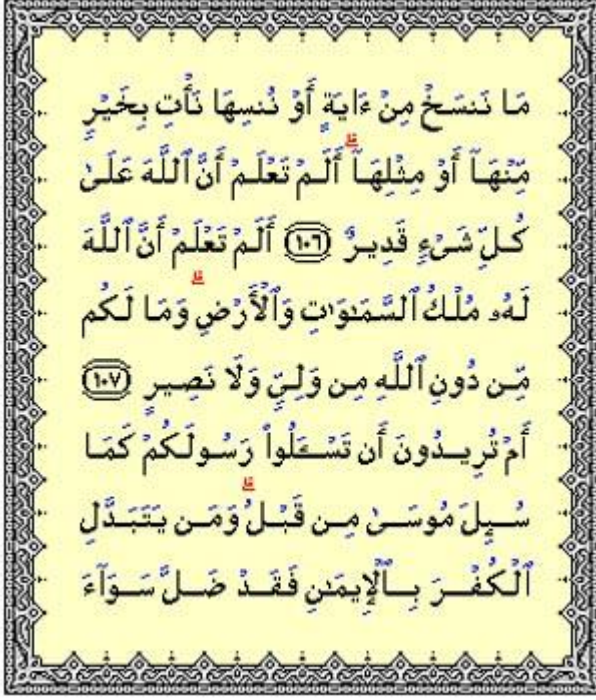 مَا نَنسَخْ مِنْ ءَايَةٍ أَوْ نُنسِهَا نَأْتِ بِخَيْرٍ
مِّنْهَآ أَوْ مِثْلِهَآ ۗ أَلَمْ تَعْلَمْ أَنَّ ٱللَّهَ عَلَىٰ
كُلِّ شَىْءٍ قَدِيرٌ ١٠٦ أَلَمْ تَعْلَمْ أَنَّ ٱللَّهَ
لَهُۥ مُلْكُ ٱلسَّمَـٰوَٰتِ وَٱلْأَرْضِ ۗ وَمَا لَكُم
مِّن دُونِ ٱللَّهِ مِن وَلِىٍّ وَلَا نَصِيرٍ ١٠٧
أَمْ تُرِيدُونَ أَن تَسْـَٔلُوا۟ رَسُولَكُمْ كَمَا
سُئِلَ مُوسَىٰ مِن قَبْلُ ۗ وَمَن يَتَبَدَّلِ
ٱلْكُفْرَ بِٱلْإِيمَـٰنِ فَقَدْ ضَلَّ سَوَآءَ